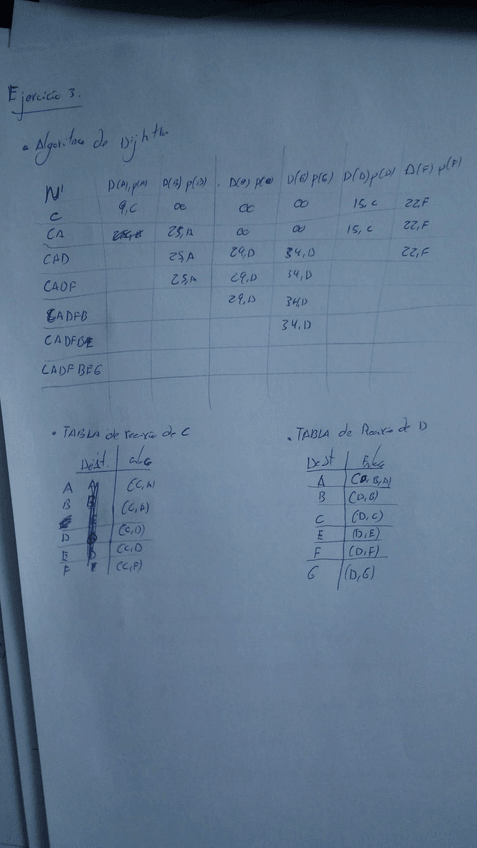 Ejercicio 3.
• Algoritmo de Dijkstra
N' D(A), p(A) D(B) p(B) D(E) p(E) D(G) p(G) D(D) p(D) D(F) p(F)
C 9,C ∞ ∞ ∞ 15,C 22,F
CA 25,A ∞ ∞ 15,C 22,F
CAD 25,A 29,D 34,D 22,F
CADF 25,A 29,D 34,D
CADFB 29,D 34,D
CADFBE 34,D
CADFBEG
• TABLA de reenvío de C
Dest. enlace
A (C,A)
B (C,A)
D (C,D)
E (C,D
F (C,F)
• TABLA de Reenvío de D
Dest Enlace
A
B (D,B)
C (D,C)
E (D,E)
F (D,F)
G (D,G)